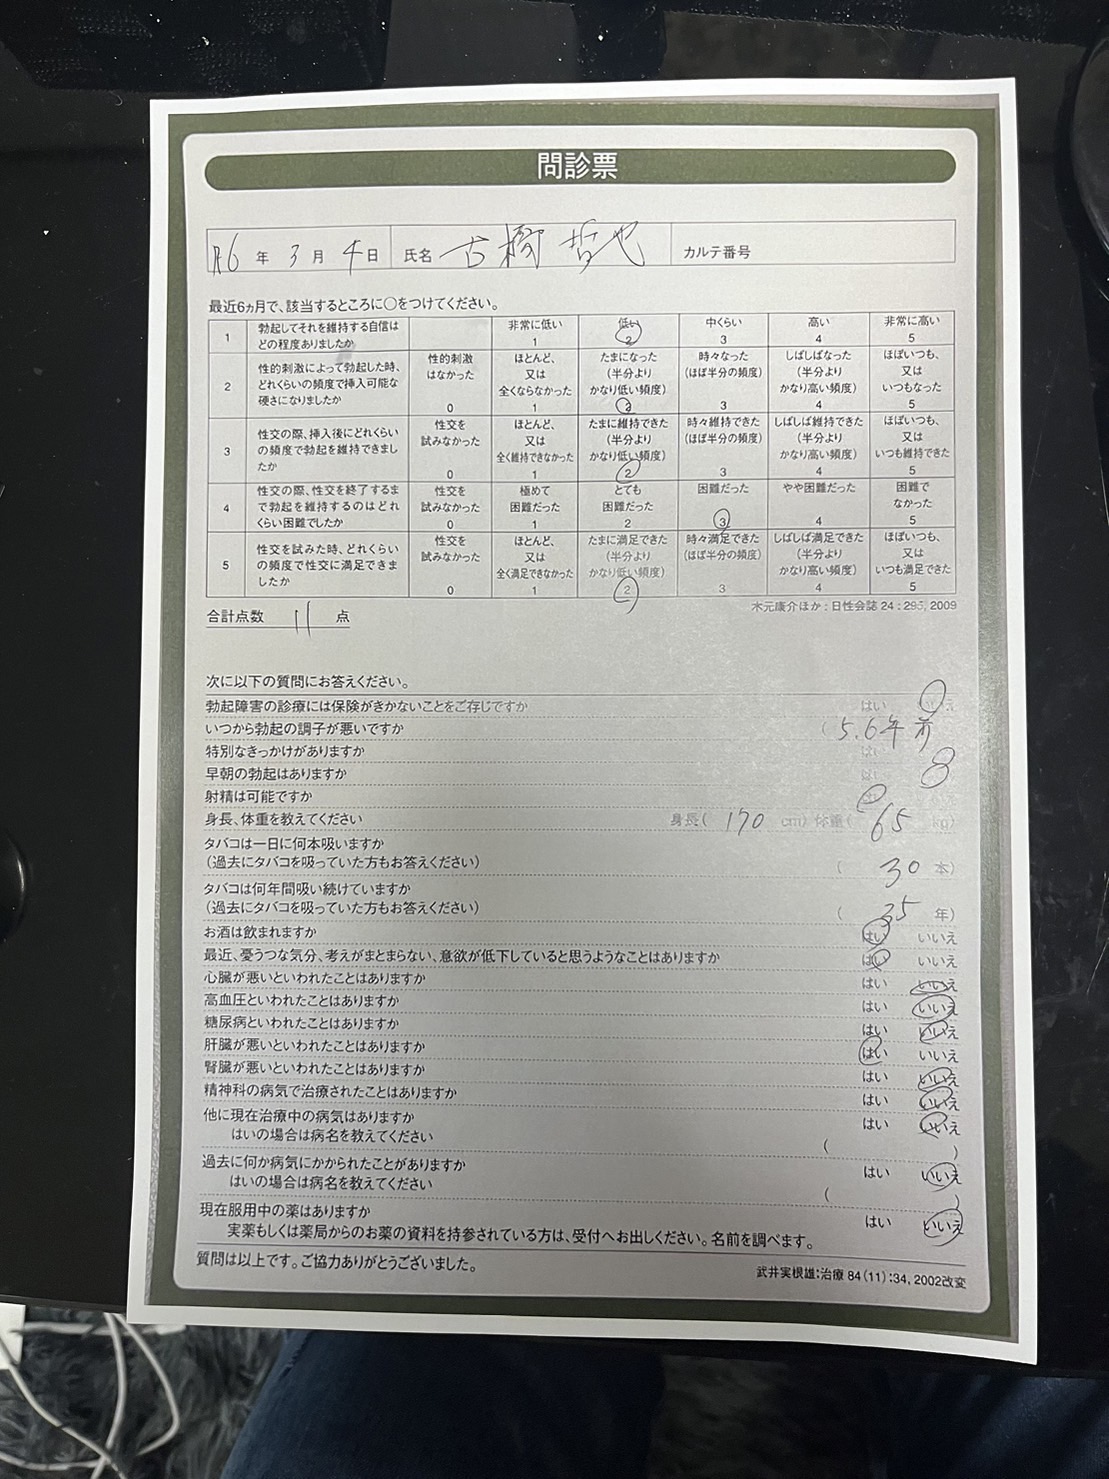 問診票
R6年 3月 4日 氏名 古樹 哲也 カルテ番号
最近6ヵ月で、該当するところに○をつけてください。
1 勃起してそれを維持する自信はどの程度ありましたか 非常に低い 1 低い 2 中くらい 3 高い 4 非常に高い 5
2 性的刺激によって勃起した時、どれくらいの頻度で挿入可能な硬さになりましたか 性的刺激はなかった 0 ほとんど、又は全くならなかった 1 たまになった(半分よりかなり低い頻度) 2 時々なった(ほぼ半分の頻度) 3 しばしばなった(半分よりかなり高い頻度) 4 ほぼいつも、又はいつもなった 5
3 性交の際、挿入後にどれくらいの頻度で勃起を維持できましたか 性交を試みなかった 0 ほとんど、又は全く維持できなかった 1 たまに維持できた(半分よりかなり低い頻度) 2 時々維持できた(ほぼ半分の頻度) 3 しばしば維持できた(半分よりかなり高い頻度) 4 ほぼいつも、又はいつも維持できた 5
4 性交の際、性交を終了するまで勃起を維持するのはどれくらい困難でしたか 性交を試みなかった 0 極めて困難だった 1 とても困難だった 2 困難だった 3 やや困難だった 4 困難でなかった 5
5 性交を試みた時、どれくらいの頻度で性交に満足できましたか 性交を試みなかった 0 ほとんど、又は全く満足できなかった 1 たまに満足できた(半分よりかなり低い頻度) 2 時々満足できた(ほぼ半分の頻度) 3 しばしば満足できた(半分よりかなり高い頻度) 4 ほぼいつも、又はいつも満足できた 5
合計点数 11 点 木元康介ほか:日性会誌 24:295, 2009
次に以下の質問にお答えください。
勃起障害の診療には保険がきかないことをご存じですか はい いいえ
いつから勃起の調子が悪いですか (5.6年前
特別なきっかけがありますか はい
早朝の勃起はありますか はい
射精は可能ですか はい
身長、体重を教えてください 身長( 170 cm) 体重( 65 kg)
タバコは一日に何本吸いますか
(過去にタバコを吸っていた方もお答えください) ( 30 本)
タバコは何年間吸い続けていますか
(過去にタバコを吸っていた方もお答えください) ( 35 年)
お酒は飲まれますか はい いいえ
最近、憂うつな気分、考えがまとまらない、意欲が低下していると思うようなことはありますか はい いいえ
心臓が悪いといわれたことはありますか はい いいえ
高血圧といわれたことはありますか はい いいえ
糖尿病といわれたことはありますか はい いいえ
肝臓が悪いといわれたことはありますか はい いいえ
腎臓が悪いといわれたことはありますか はい いいえ
精神科の病気で治療されたことはありますか はい いいえ
他に現在治療中の病気はありますか はい いいえ
はいの場合は病名を教えてください ( )
過去に何か病気にかかられたことがありますか はい いいえ
はいの場合は病名を教えてください ( )
現在服用中の薬はありますか はい いいえ
実薬もしくは薬局からのお薬の資料を持参されている方は、受付へお出しください。名前を調べます。
質問は以上です。ご協力ありがとうございました。
武井実根雄:治療 84(11):34, 2002改変